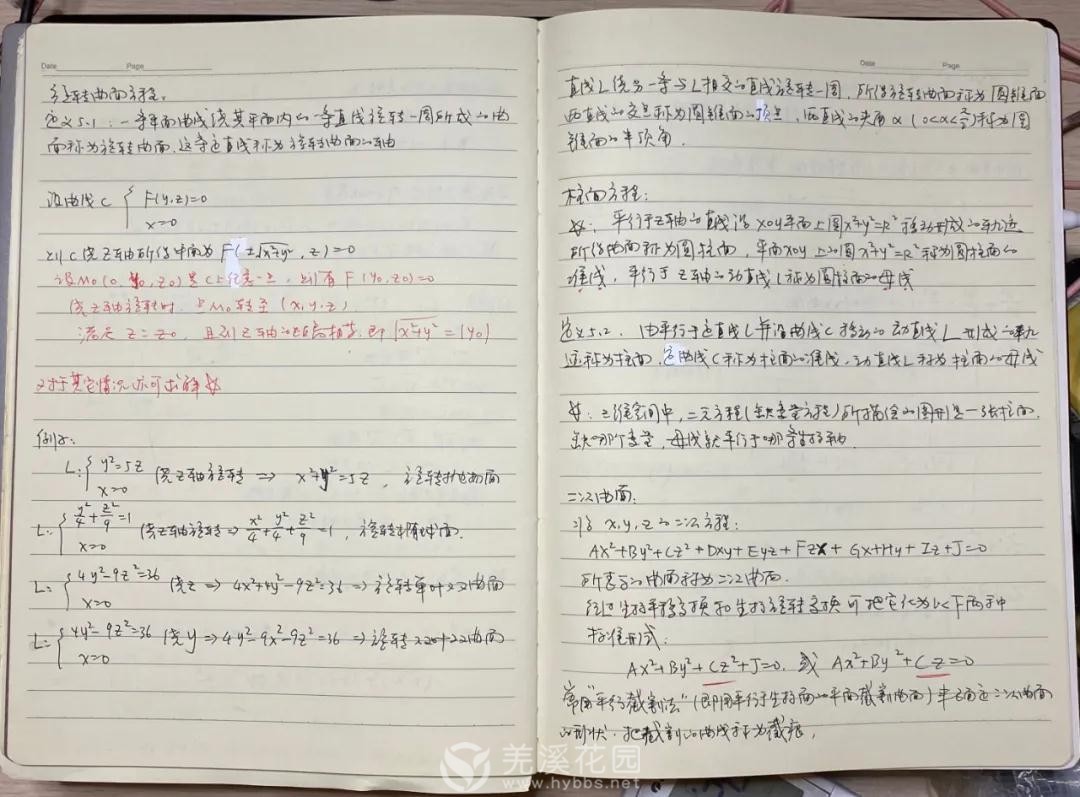 Date Page
旋转曲面方程。
定义5.1：一条平面曲线绕其平面内的一条直线旋转一周所成的曲
面称为旋转曲面，这条定直线称为旋转曲面的轴
设曲线C { F(y,z)=0
x=0
则C绕Z轴所得曲面为 F(±√x²+y², z)=0
设M0(0, y0, z0)是C上任意一点，则有 F(y0,z0)=0
绕Z轴旋转时，点M0转至(x,y,z)
满足 z=z0，且到Z轴的距离相等，即√x²+y²=|y0|
对于其它情况亦可求解
例子：
L: { y²=5z
x=0
绕Z轴旋转 ⇒ x²+y²=5z，旋转抛物面
L: { y²/4+z²/9=1
x=0
绕Z轴旋转 ⇒ x²/4+y²/4+z²/9=1，旋转椭球面.
L: { 4y²-9z²=36
x=0
绕z ⇒ 4x²+4y²-9z²=36 ⇒ 旋转单叶双曲面
L: { 4y²-9z²=36
x=0
绕y ⇒ 4y²-9x²-9z²=36 ⇒ 旋转双叶双曲面
Date Page
直线L绕另一条与L相交的直线旋转一周，所得旋转曲面称为圆锥面
两直线的交点称为圆锥面的顶点，两直线的夹角α(0<α<π/2)称为圆
锥面的半顶角.
柱面方程：
平行于Z轴的直线沿xoy平面上圆x²+y²=R²移动形成的轨迹
所得曲面称为圆柱面，平面xoy上的圆x²+y²=R²称为圆柱面的
准线，平行于Z轴的动直线L称为圆柱面的母线
定义5.2. 由平行于定直线L并沿曲线C移动的动直线L形成的轨
迹称为柱面，定曲线C称为柱面的准线，动直线L称为柱面的母线
三维空间中，二元方程(缺变量方程)所描绘的图形是一张柱面，
缺哪个变量，母线就平行于哪条坐标轴.
二次曲面：
x,y,z的二次方程：
Ax²+By²+Cz²+Dxy+Eyz+Fzx+Gx+Hy+Iz+J=0
所表示的曲面称为二次曲面.
经过坐标平移变换和坐标旋转变换可把它化为以下两种
标准形式：
Ax²+By²+Cz²+J=0，或 Ax²+By²+Cz=0
常用"平行截割法"(即用平行于坐标面的平面截割曲面)来确定二次曲面
的形状，把截割的曲线称为截痕，
羌溪花园
www.hybbs.net